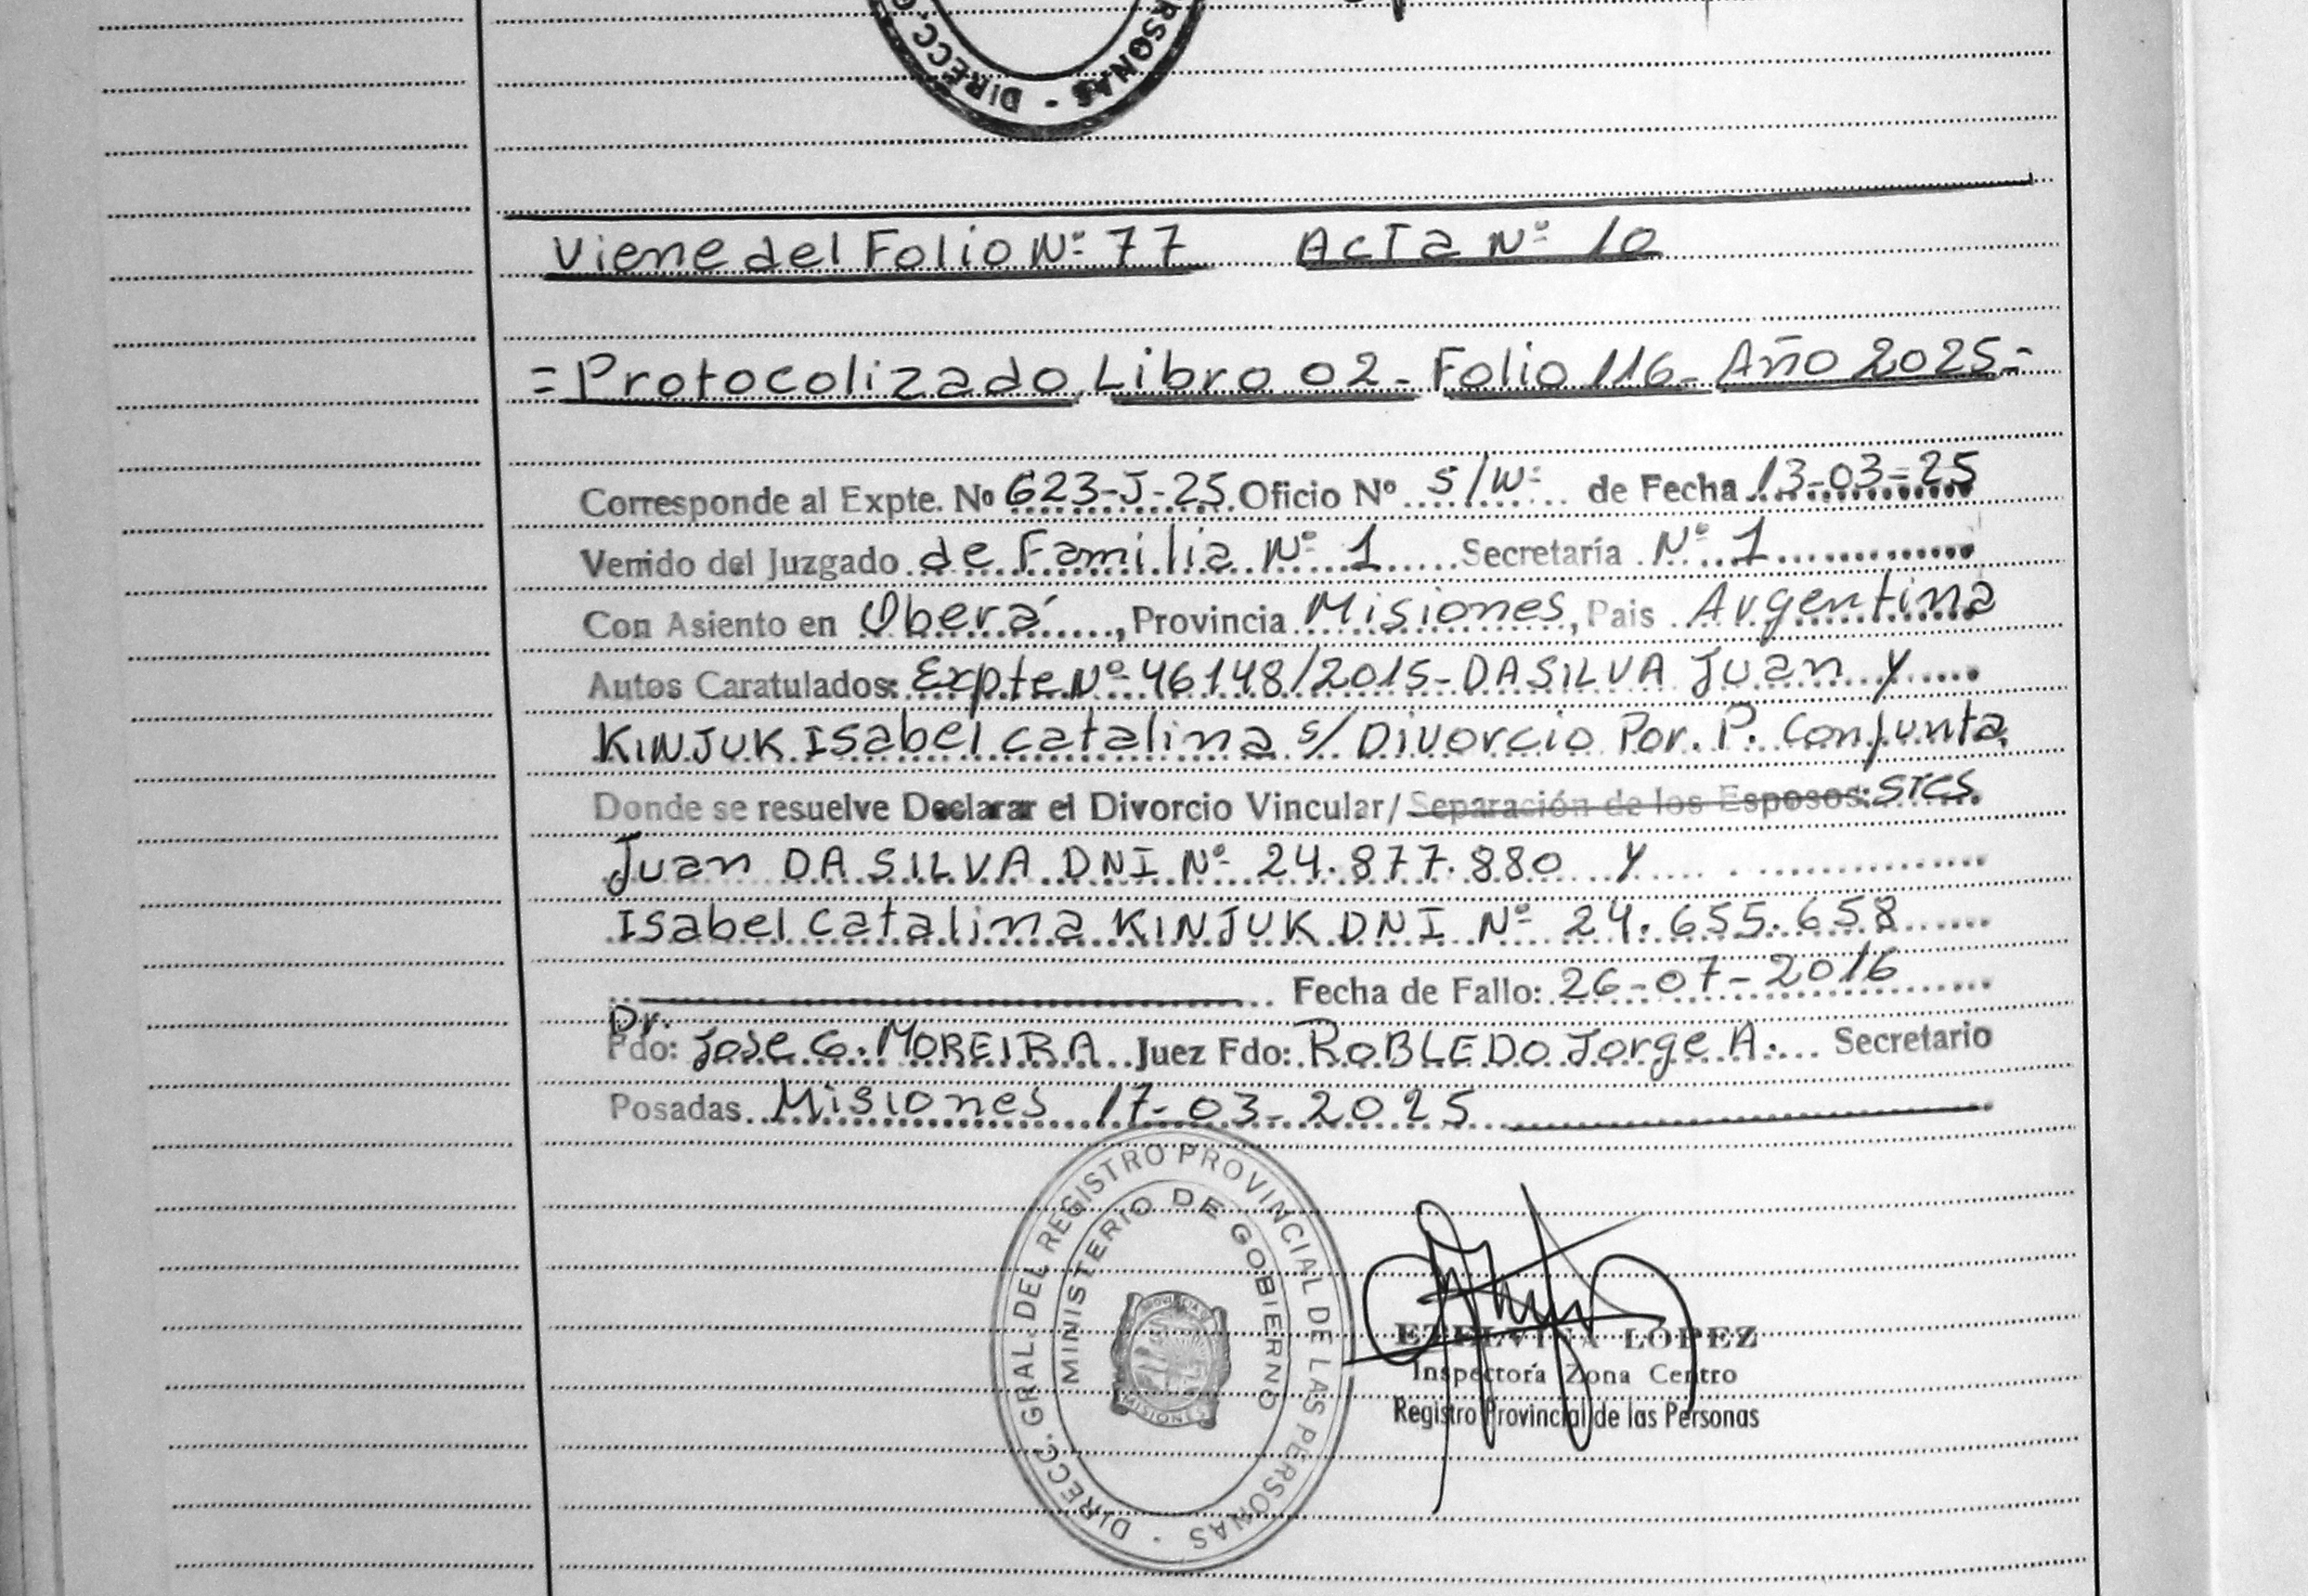 DIRECC. PERSONAS -
Viene del Folio Nº 77 Acta Nº 10
= Protocolizado Libro 02 - Folio 116 - Año 2025 =
Corresponde al Expte. Nº 623-J-25 Oficio Nº S/Nº de Fecha 13-03-25
Venido del Juzgado de Familia Nº 1 Secretaría Nº 1
Con Asiento en Oberá, Provincia Misiones, Pais Argentina
Autos Caratulados: Expte Nº 46148/2015 - DASILVA Juan y
KINJUK Isabel Catalina s/ Divorcio Por. P. Conjunta
Donde se resuelve Declarar el Divorcio Vincular/ Separación de los Esposos: sres
Juan DASILVA DNI Nº 24.877.880 y
Isabel Catalina KINJUK DNI Nº 24.655.658
Fecha de Fallo: 26-07-2016
Dr.
Fdo: Jose G. MOREIRA Juez Fdo: ROBLEDO Jorge A. Secretario
Posadas Misiones 17-03-2025
DIRECC. GRAL. DEL REGISTRO PROVINCIAL DE LAS PERSONAS -
MINISTERIO DE GOBIERNO
MISIONES
ETELVINA LOPEZ
Inspectora Zona Centro
Registro Provincial de las Personas